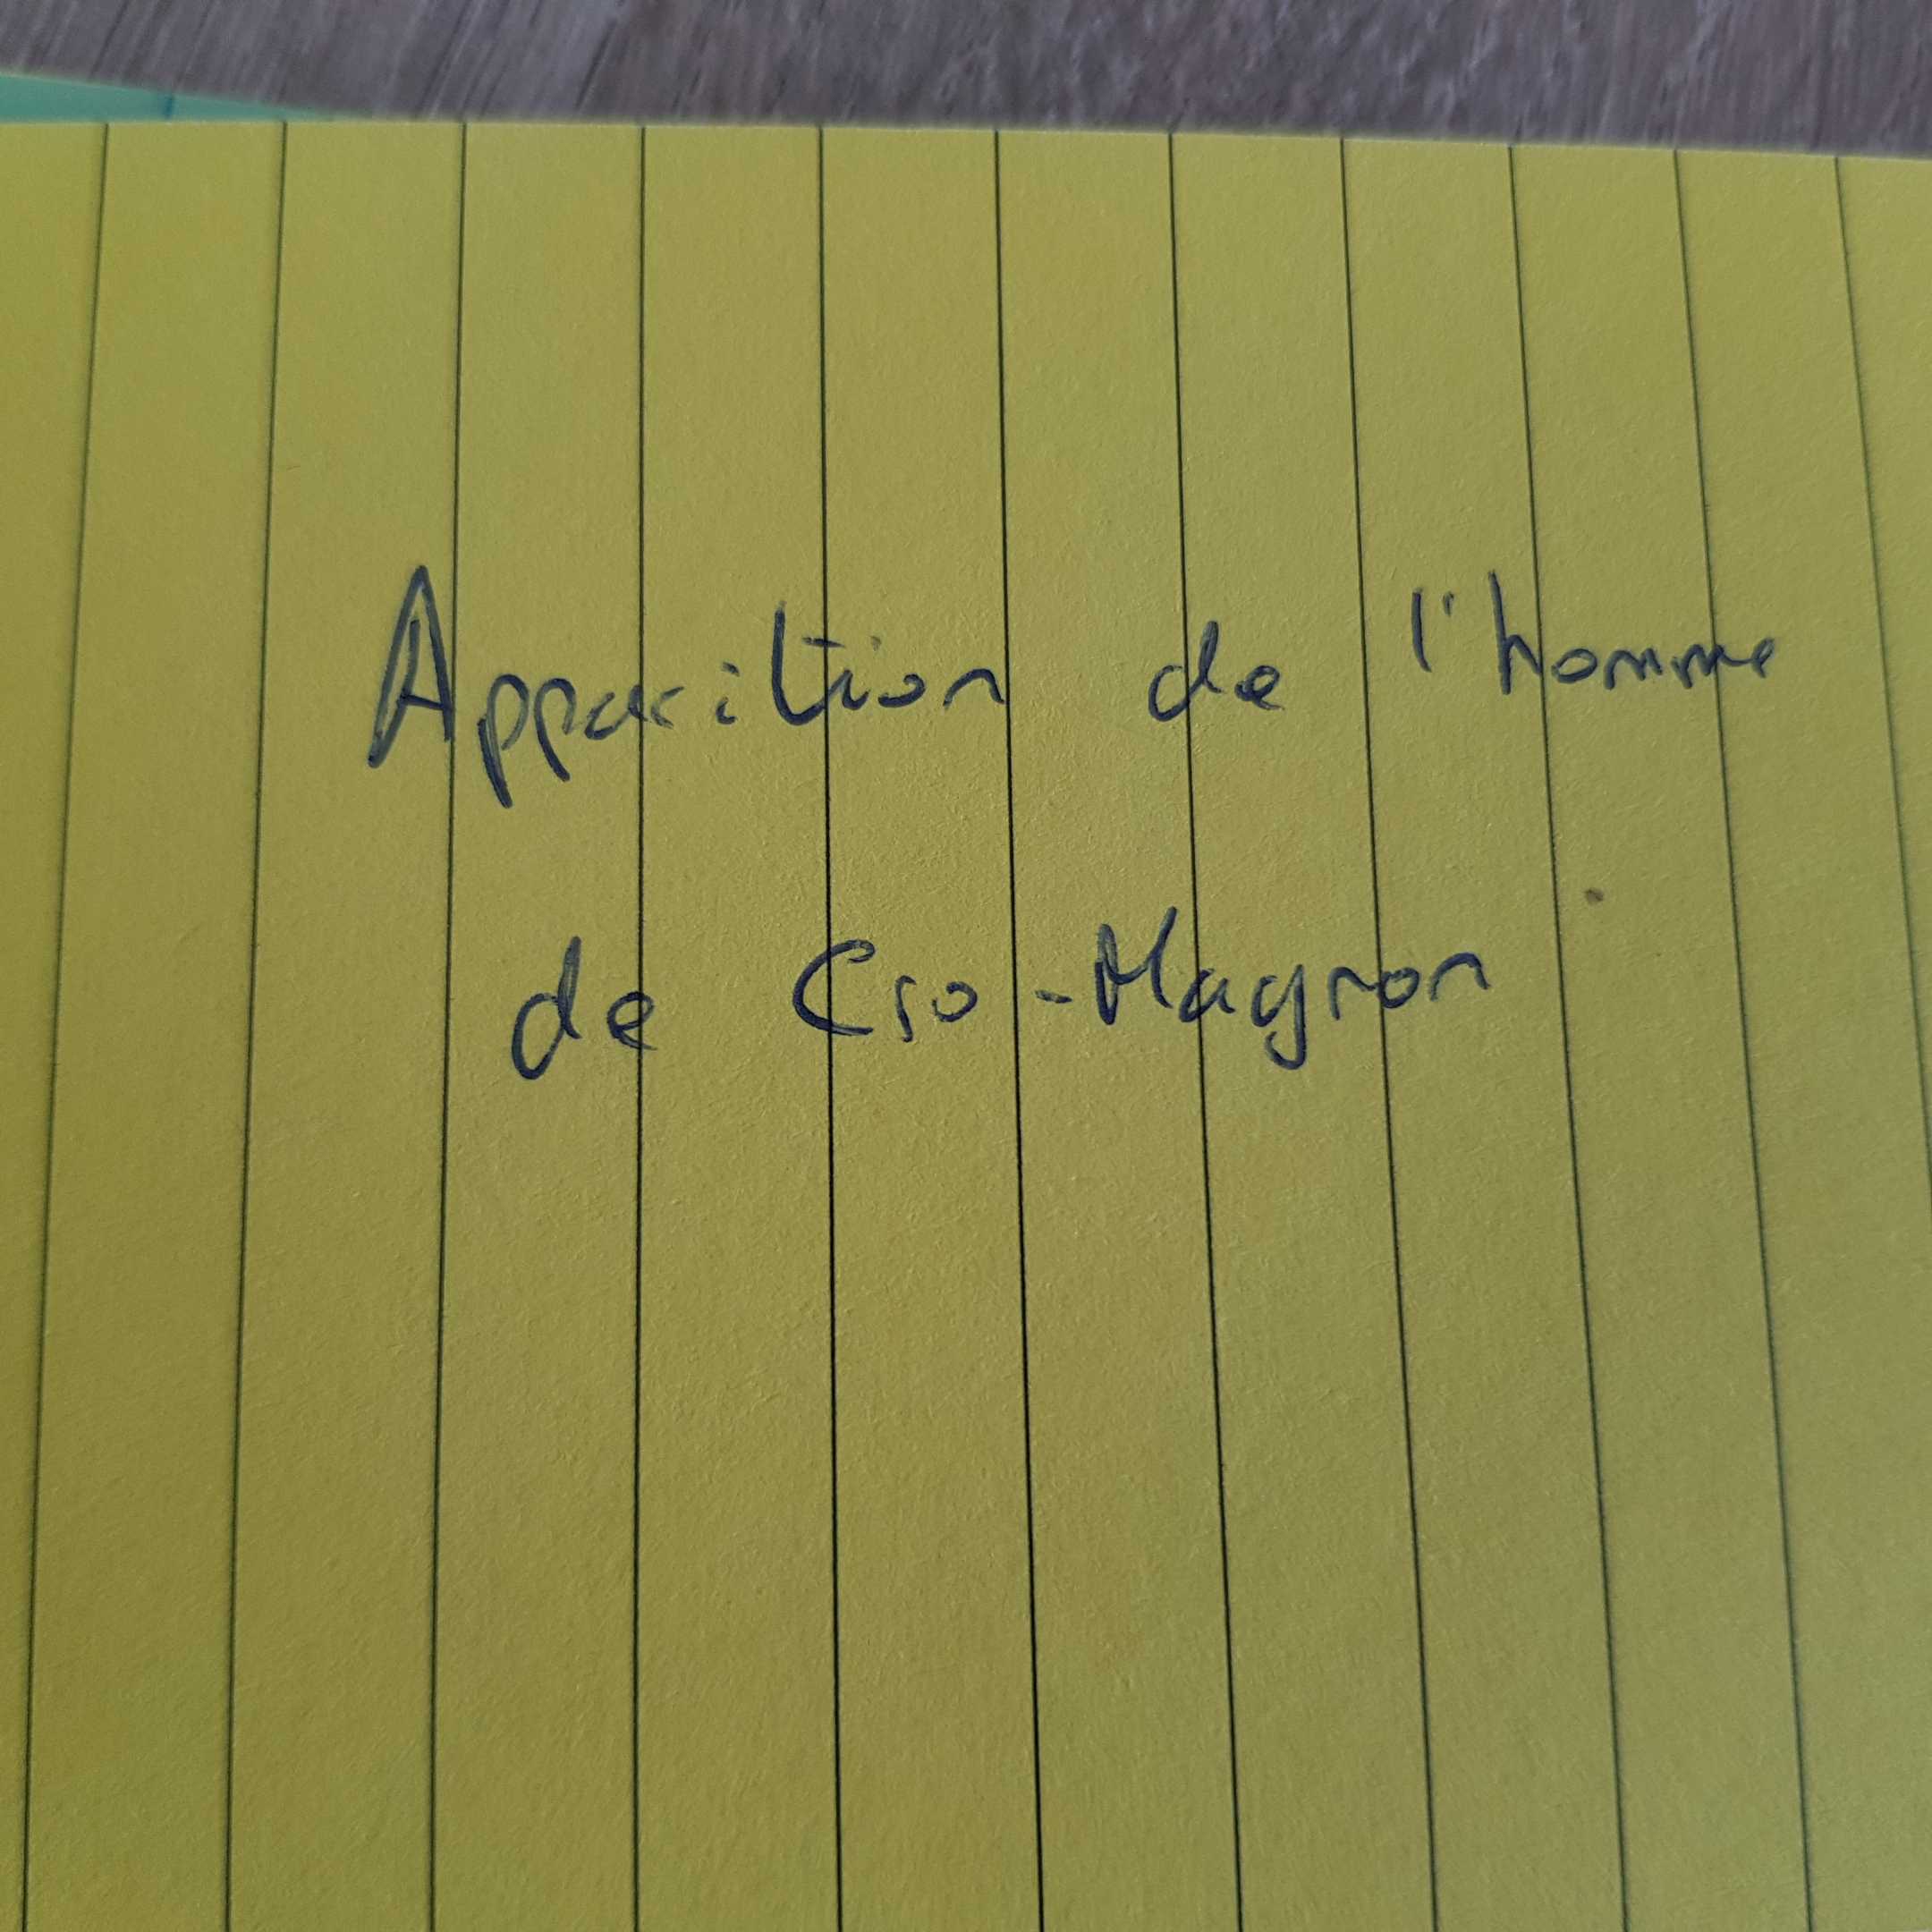 Apparition de l'homme
de Cro-Magnon